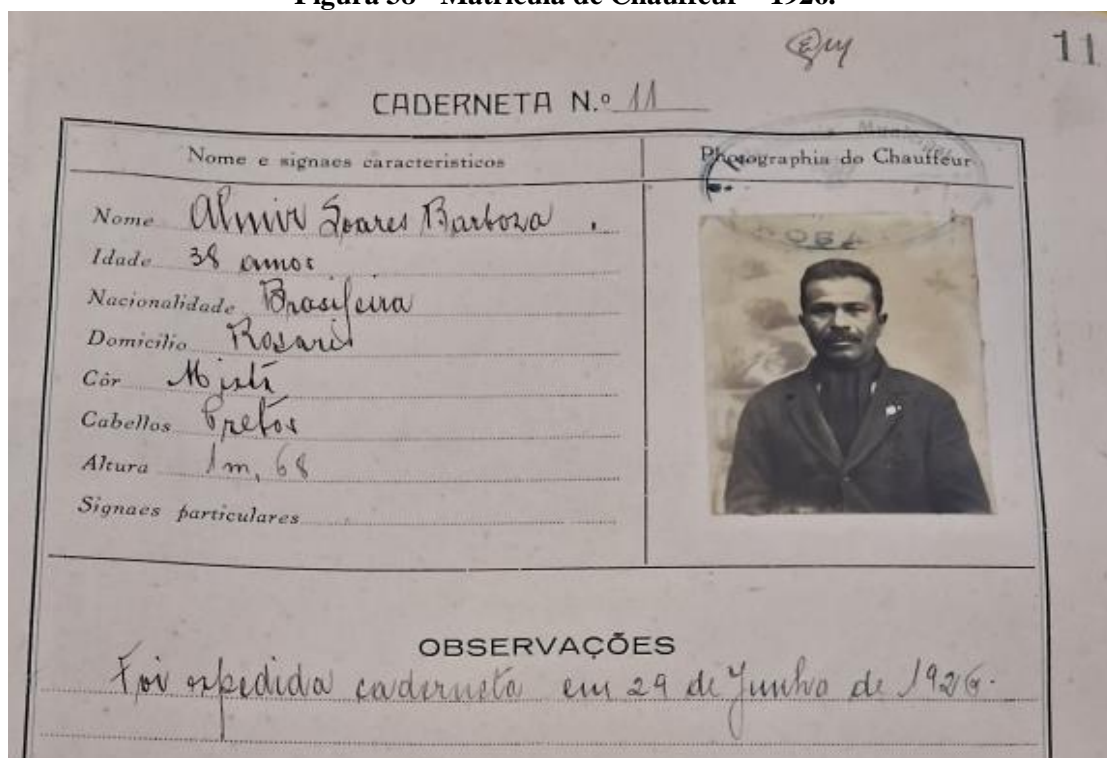 Figura 38 - Matrícula de Chauffeur – 1926.
11
CADERNETA N.º 11
Nome e signaes caracteristicos
Photographia do Chauffeur
Nome Almir Soares Barboza.
Idade 38 annos
Nacionalidade Brasileira
Domicilio Rosario
Côr Mixta
Cabellos Pretos
Altura 1m,68
Signaes particulares
OBSERVAÇÕES
Foi expedida caderneta em 29 de Junho de 1926.